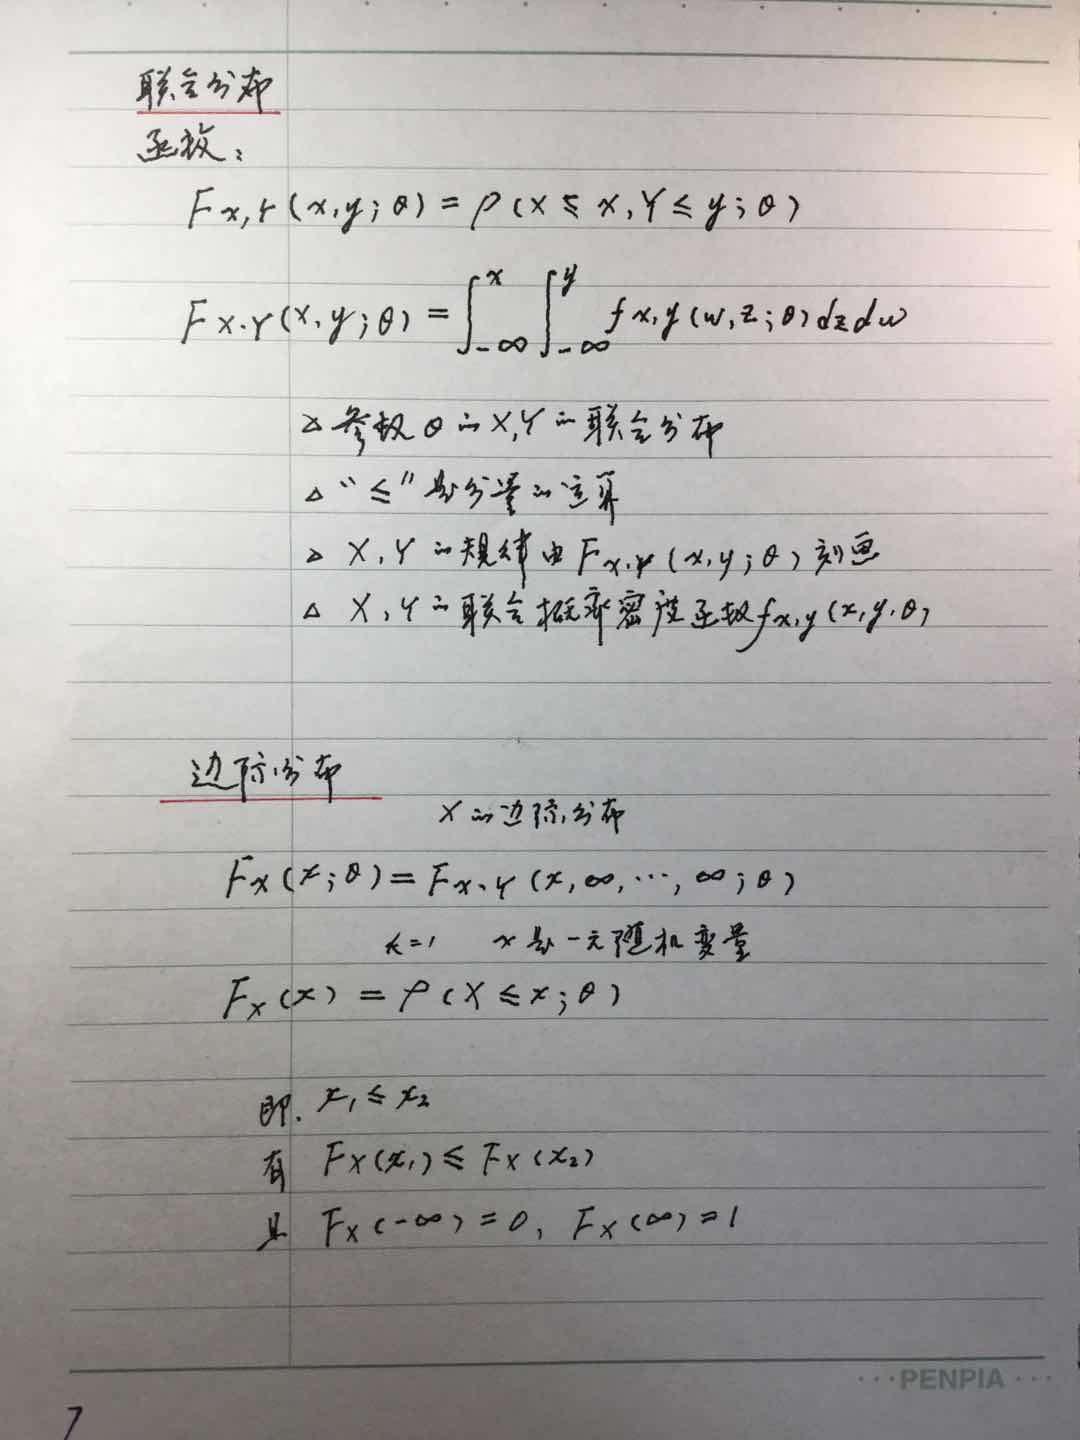 联合分布
函数：
F_{X,Y}(x,y;θ) = P(X ≤ x, Y ≤ y;θ)
F_{X,Y}(x,y;θ) = ∫_{-∞}^{x} ∫_{-∞}^{y} f_{x,y}(w,z;θ) dz dw
△ 参数 θ 的 X,Y 的联合分布
△ “≤” 是分量的运算
△ X,Y 的规律由 F_{X,Y}(x,y;θ) 刻画
△ X,Y 的联合概率密度函数 f_{x,y}(x,y,θ)
边际分布
X 的边际分布
F_X(x;θ) = F_{X,Y}(x,∞,…,∞;θ)
k=1 x 是一元随机变量
F_X(x) = P(X ≤ x;θ)
即. x₁ ≤ x₂
有 F_X(x₁) ≤ F_X(x₂)
且 F_X(-∞) = 0, F_X(∞) = 1
···PENPIA···
7